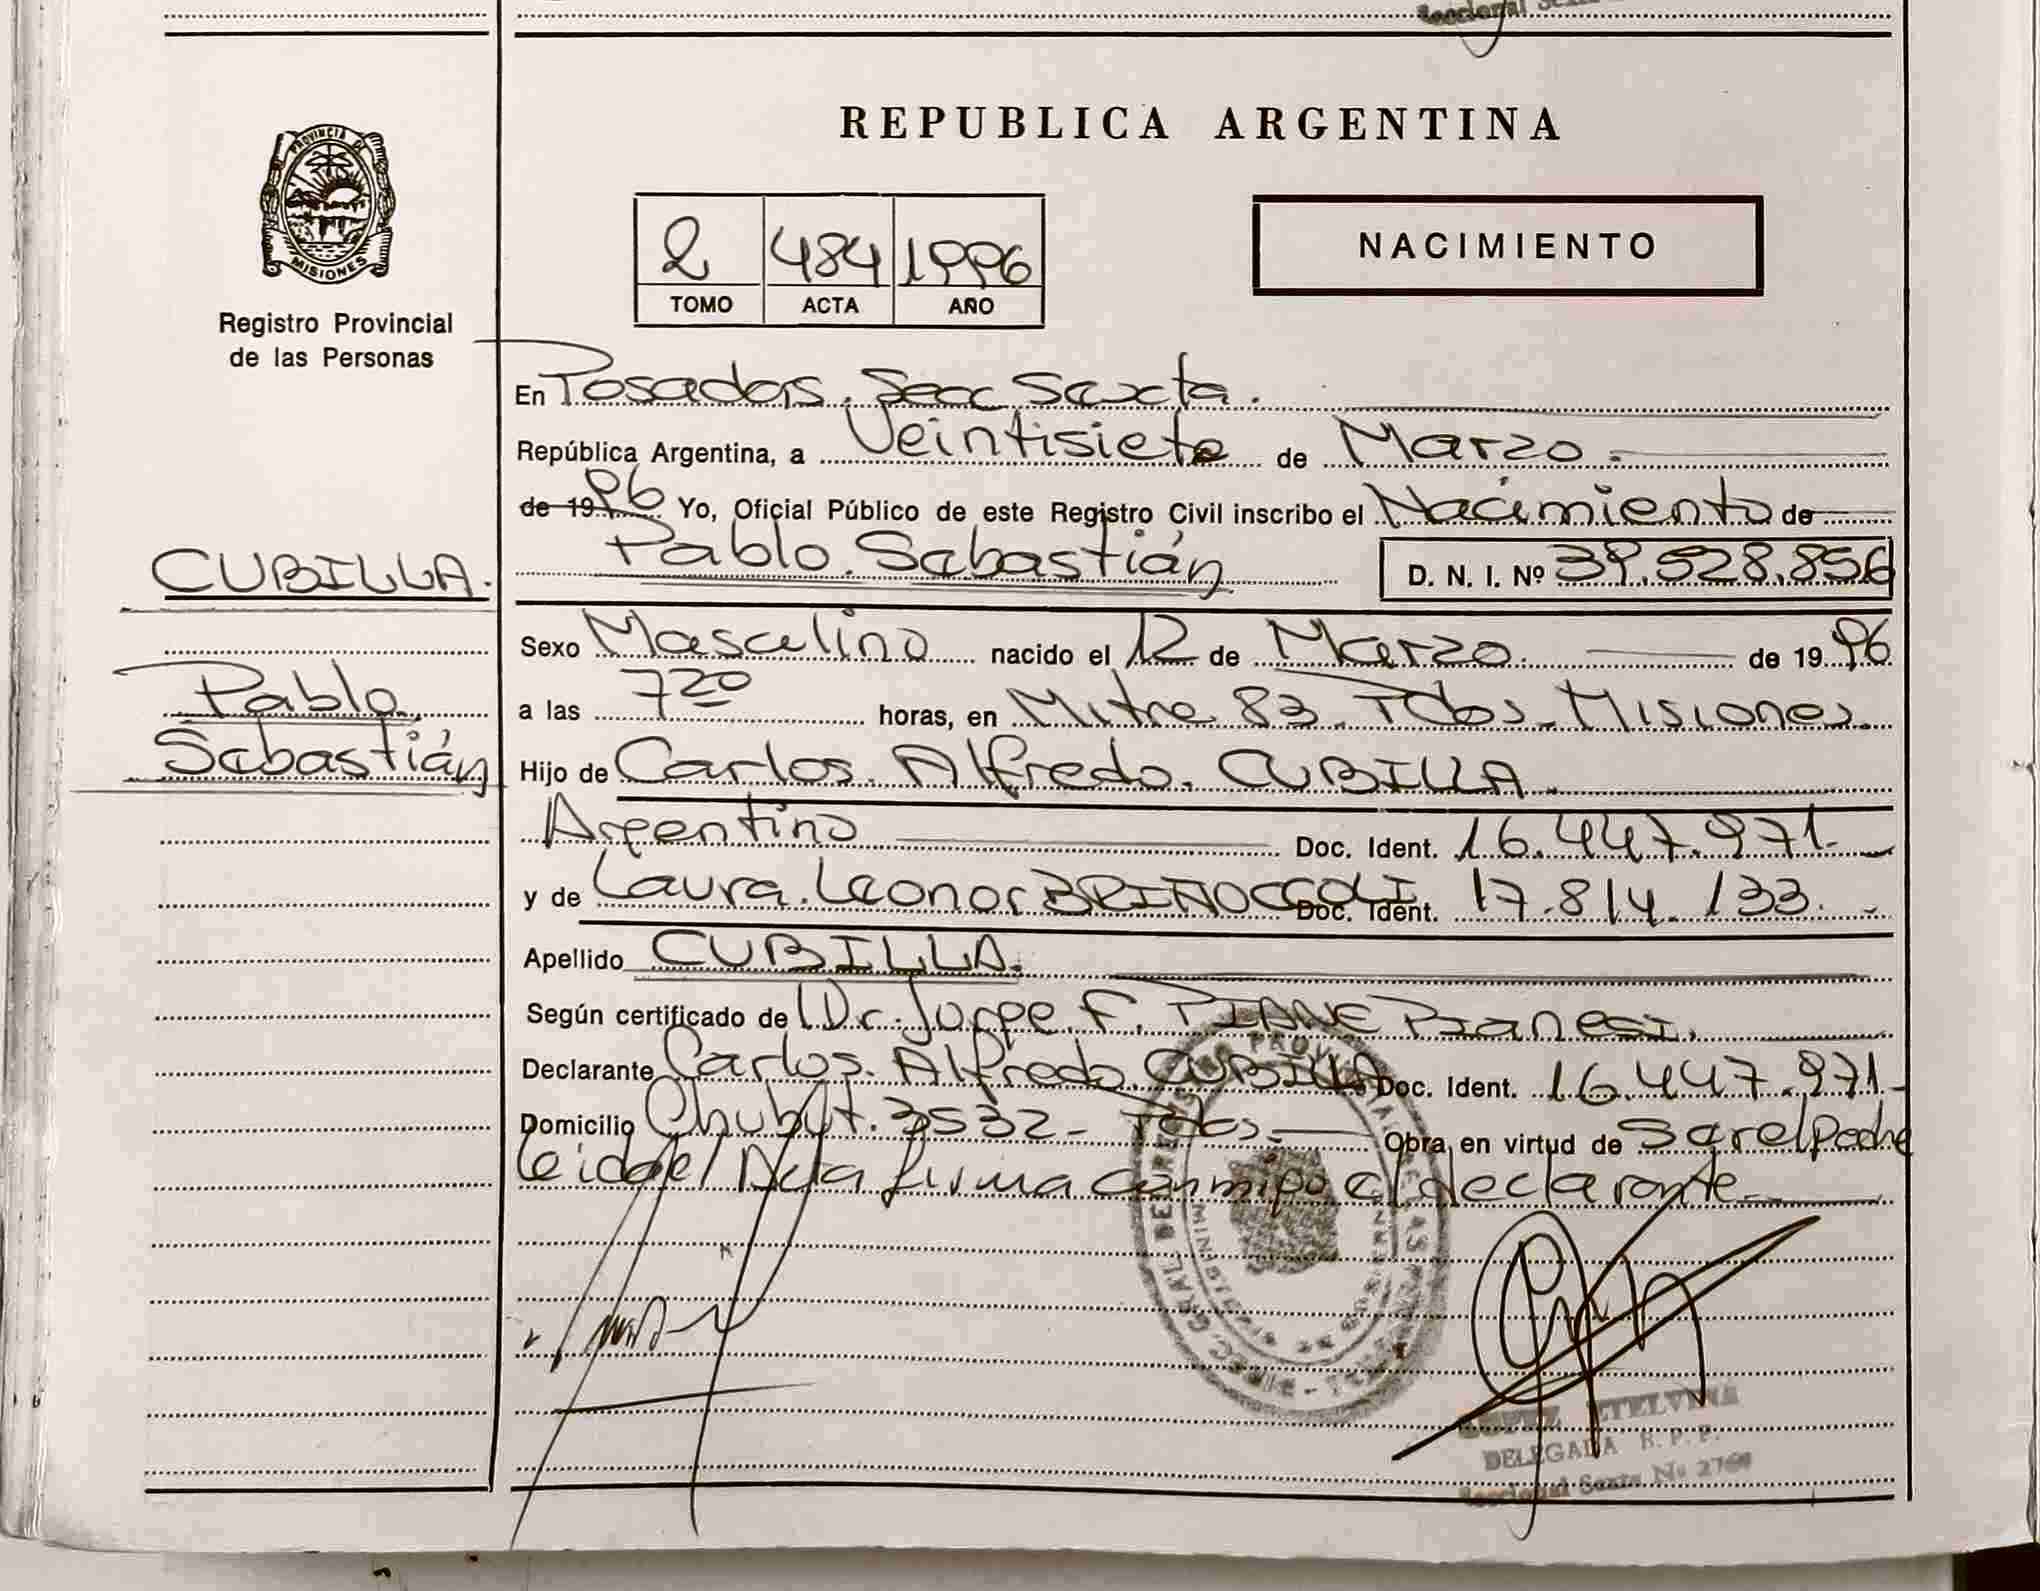 REPUBLICA ARGENTINA
PROVINCIA DE
MISIONES
Registro Provincial
de las Personas
2 484 1996
TOMO ACTA AÑO
NACIMIENTO
En Posadas. Secc Sexta.
República Argentina, a Veintisiete de Marzo.
de 1996 Yo, Oficial Público de este Registro Civil inscribo el Nacimiento de
Pablo Sebastián D. N. I. Nº 39.528.856
CUBILLA.
Pablo
Sebastián
Sexo Masculino nacido el 12 de Marzo de 1996
a las 7 20 horas, en Mitre 83. Pdas. Misiones.
Hijo de Carlos Alfredo. CUBILLA.
Argentino Doc. Ident. 16.447.971.
y de Laura Leonor BRIÑOCCOLI Doc. Ident. 17.814.133.
Apellido CUBILLA.
Según certificado de Dr. Jorge F. PIANE Pianesi.
Declarante Carlos Alfredo CUBILLA Doc. Ident. 16.447.971-
Domicilio Chubut 3532 - Pdas. Obra en virtud de Ser el padre
Leida el Acta firma conmigo el declarante
LOPEZ ETELVINA
DELEGADA R. P. P.
Seccional Sexta Nº